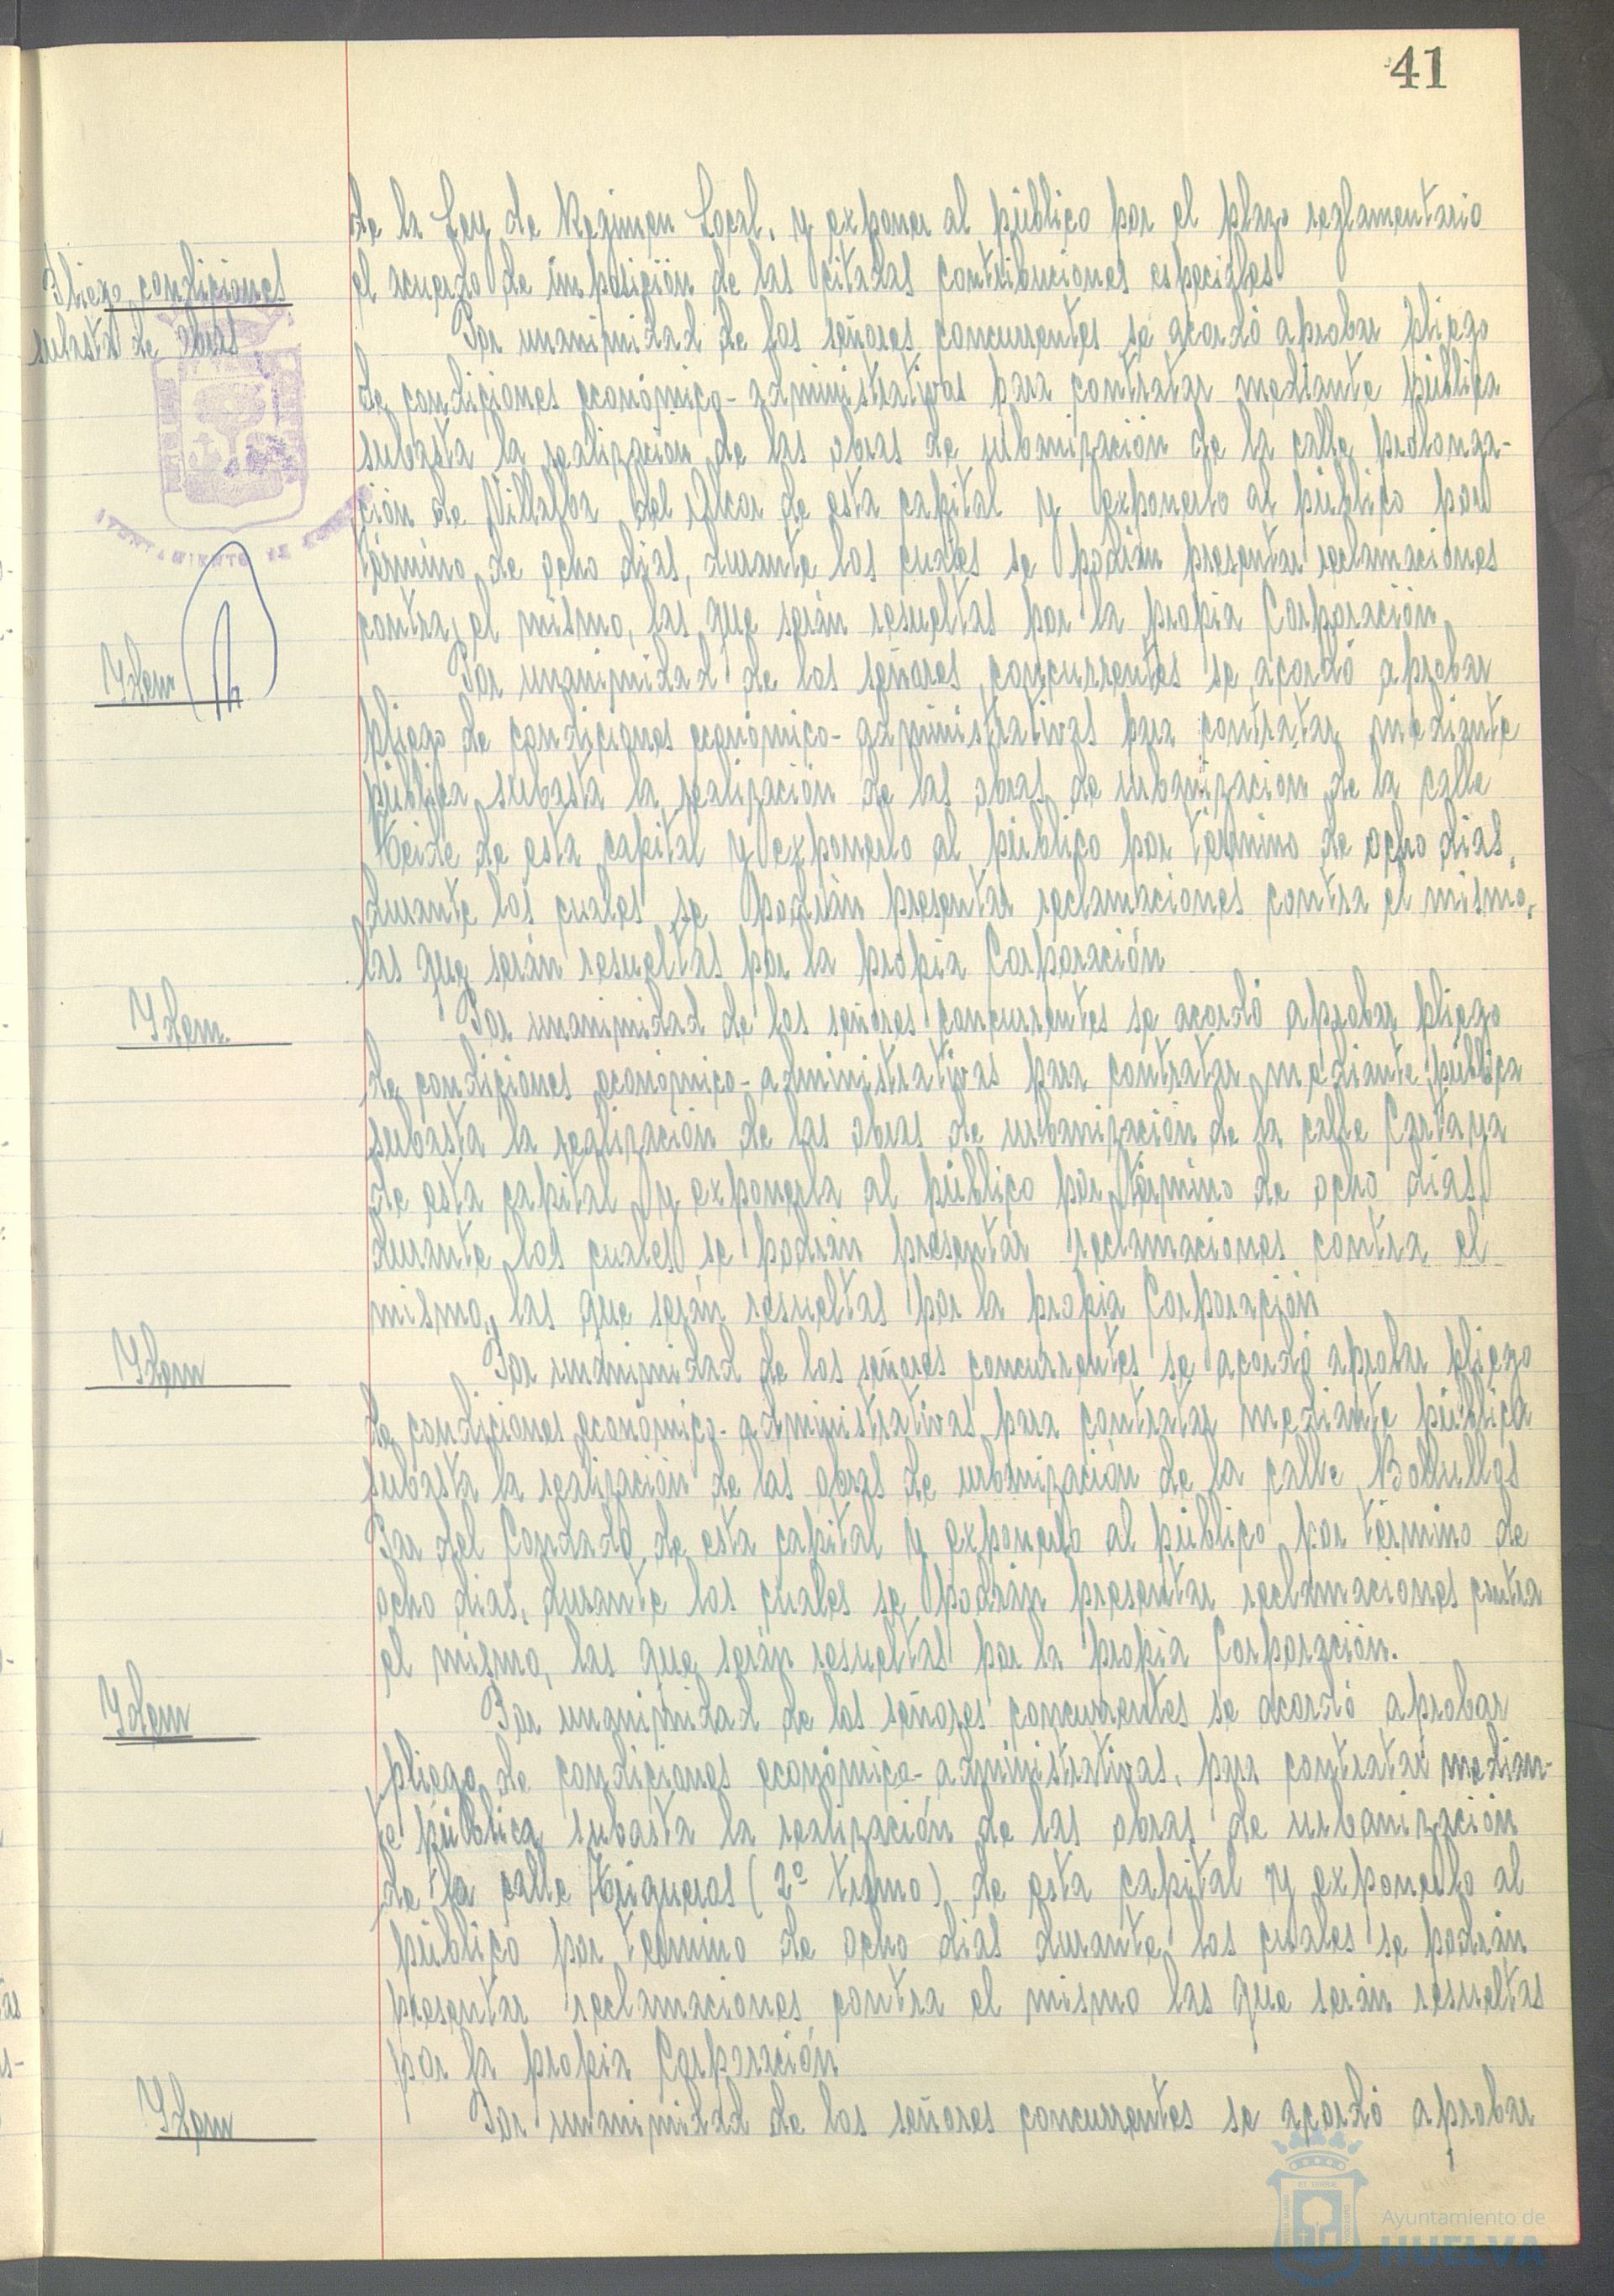 41
de la Ley de Regimen Local, y exponer al público por el plazo reglamentario
el acuerdo de imposición de las citadas contribuciones especiales.
Pliego condiciones
subasta de obras
Por unanimidad de los señores concurrentes se acordó aprobar pliego
de condiciones económico-administrativas para contratar mediante pública
subasta la realización de las obras de urbanización de la calle prolonga-
ción de Villalba del Alcor de esta capital y exponerlo al público por
término de ocho dias, durante los cuales se podrán presentar reclamaciones
contra el mismo, las que serán resueltas por la propia Corporación
AYUNTAMIENTO DE HUELVA
Idem
Por unanimidad de los señores concurrentes se acordó aprobar
pliego de condiciones económico-administrativas para contratar mediante
pública subasta la realización de las obras de urbanización de la calle
de esta capital y exponerlo al público por término de ocho dias,
durante los cuales se podrán presentar reclamaciones contra el mismo,
las que serán resueltas por la propia Corporación
Idem
Por unanimidad de los señores concurrentes se acordó aprobar pliego
de condiciones económico-administrativas para contratar mediante pública
subasta la realización de las obras de urbanización de la calle Cartaya
de esta capital y exponerla al público por término de ocho dias
durante los cuales se podrán presentar reclamaciones contra el
mismo, las que serán resueltas por la propia Corporación
Idem
Por unanimidad de los señores concurrentes se acordó aprobar pliego
de condiciones económico-administrativas para contratar mediante pública
subasta la realización de las obras de urbanización de la calle Bollullos
Par del Condado de esta capital y exponerlo al público por término de
ocho dias, durante los cuales se podrán presentar reclamaciones contra
el mismo, las que serán resueltas por la propia Corporación.
Idem
Por unanimidad de los señores concurrentes se acordó aprobar
pliego de condiciones económico-administrativas, para contratar median-
te pública subasta la realización de las obras de urbanización
de la calle Trigueros (2º tramo) de esta capital y exponerlo al
público por termino de ocho dias durante los cuales se podrán
presentar reclamaciones contra el mismo las que serán resueltas
por la propia Corporación
Idem
Por unanimidad de los señores concurrentes se acordó aprobar
Ayuntamiento de
HUELVA